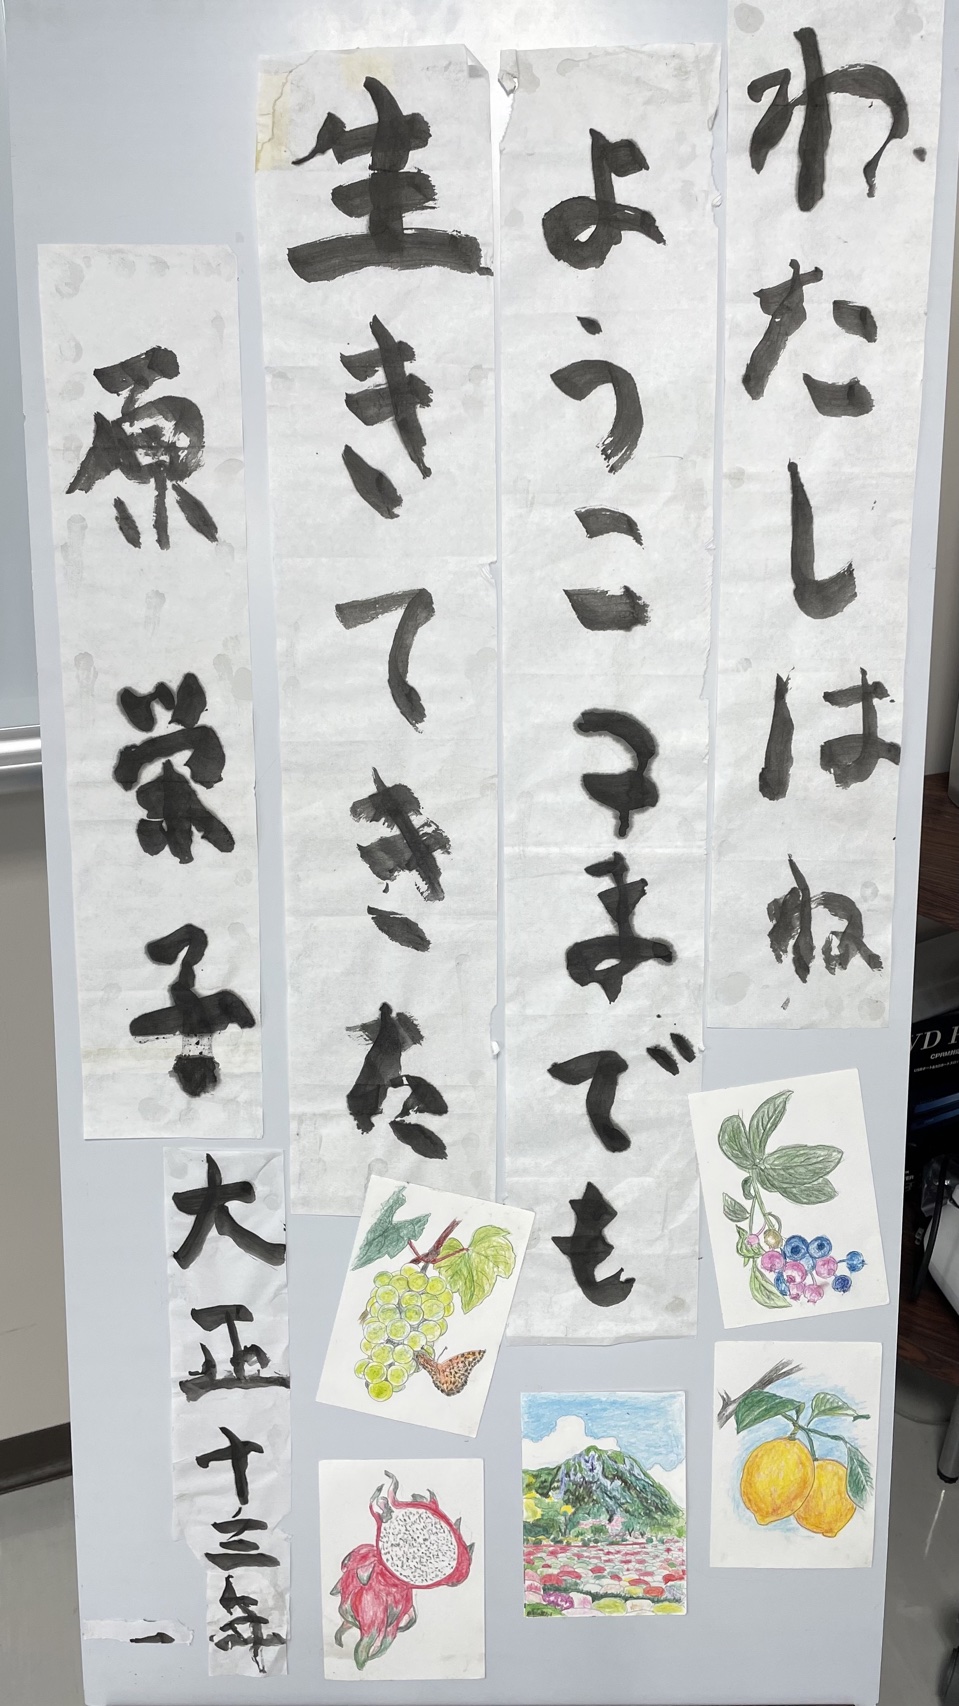 わたしはね
ようこコまでも
生きてきた
原栄子
大正十三年